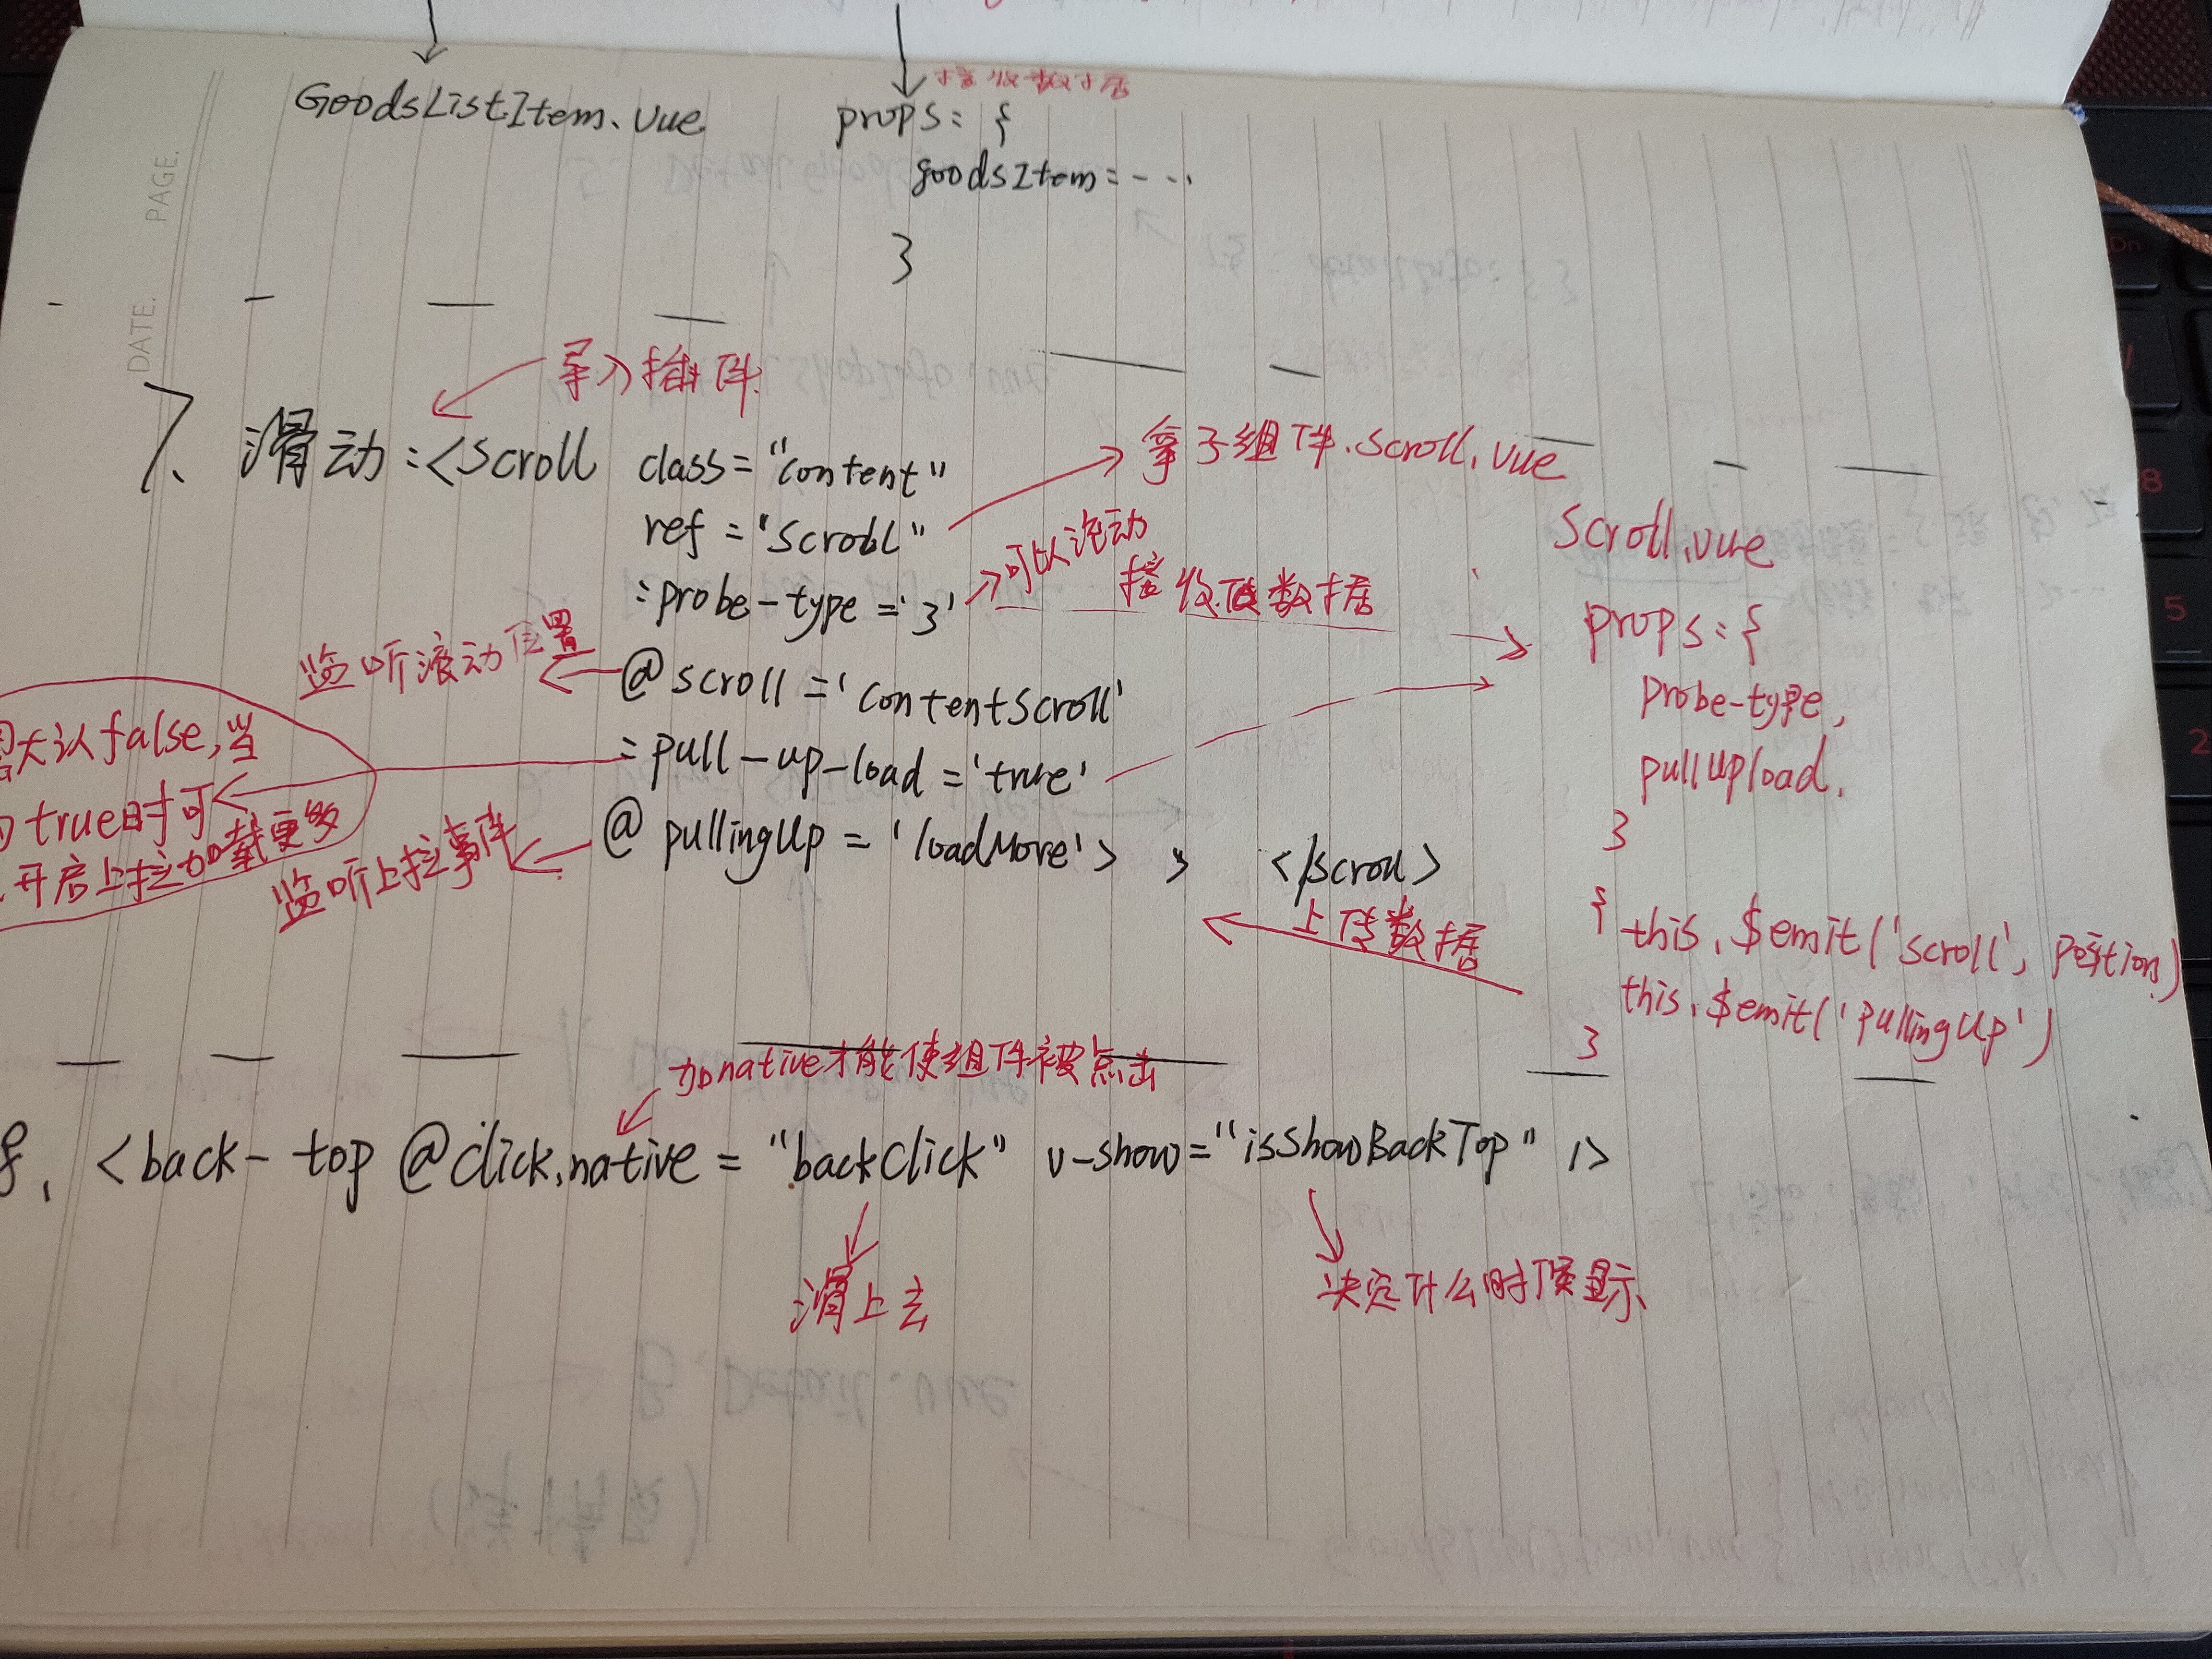 接收数据
GoodsListItem.vue
props: {
goodsItem = - ...
}
PAGE.
DATE.
导入插件
7、滑动:<scroll class="content"
ref="scroll"
拿子组件.scroll.vue
:probe-type='3'
可以滚动
接收值数据
@scroll='contentScroll'
监听滚动位置
:pull-up-load='true'
大认false,当
true时可
开启上拉加载更多
@pullingUp='loadMore'> </scroll>
监听上拉事件
scroll.vue
props:{
probe-type,
pullUpload.
}
上传数据
{ this.$emit('scroll', position)
this.$emit('pullingUp')
}
加native才能使组件被点击
8. <back-top @click.native="backClick" v-show="isShowBackTop" />
滑上去
决定什么时候显示